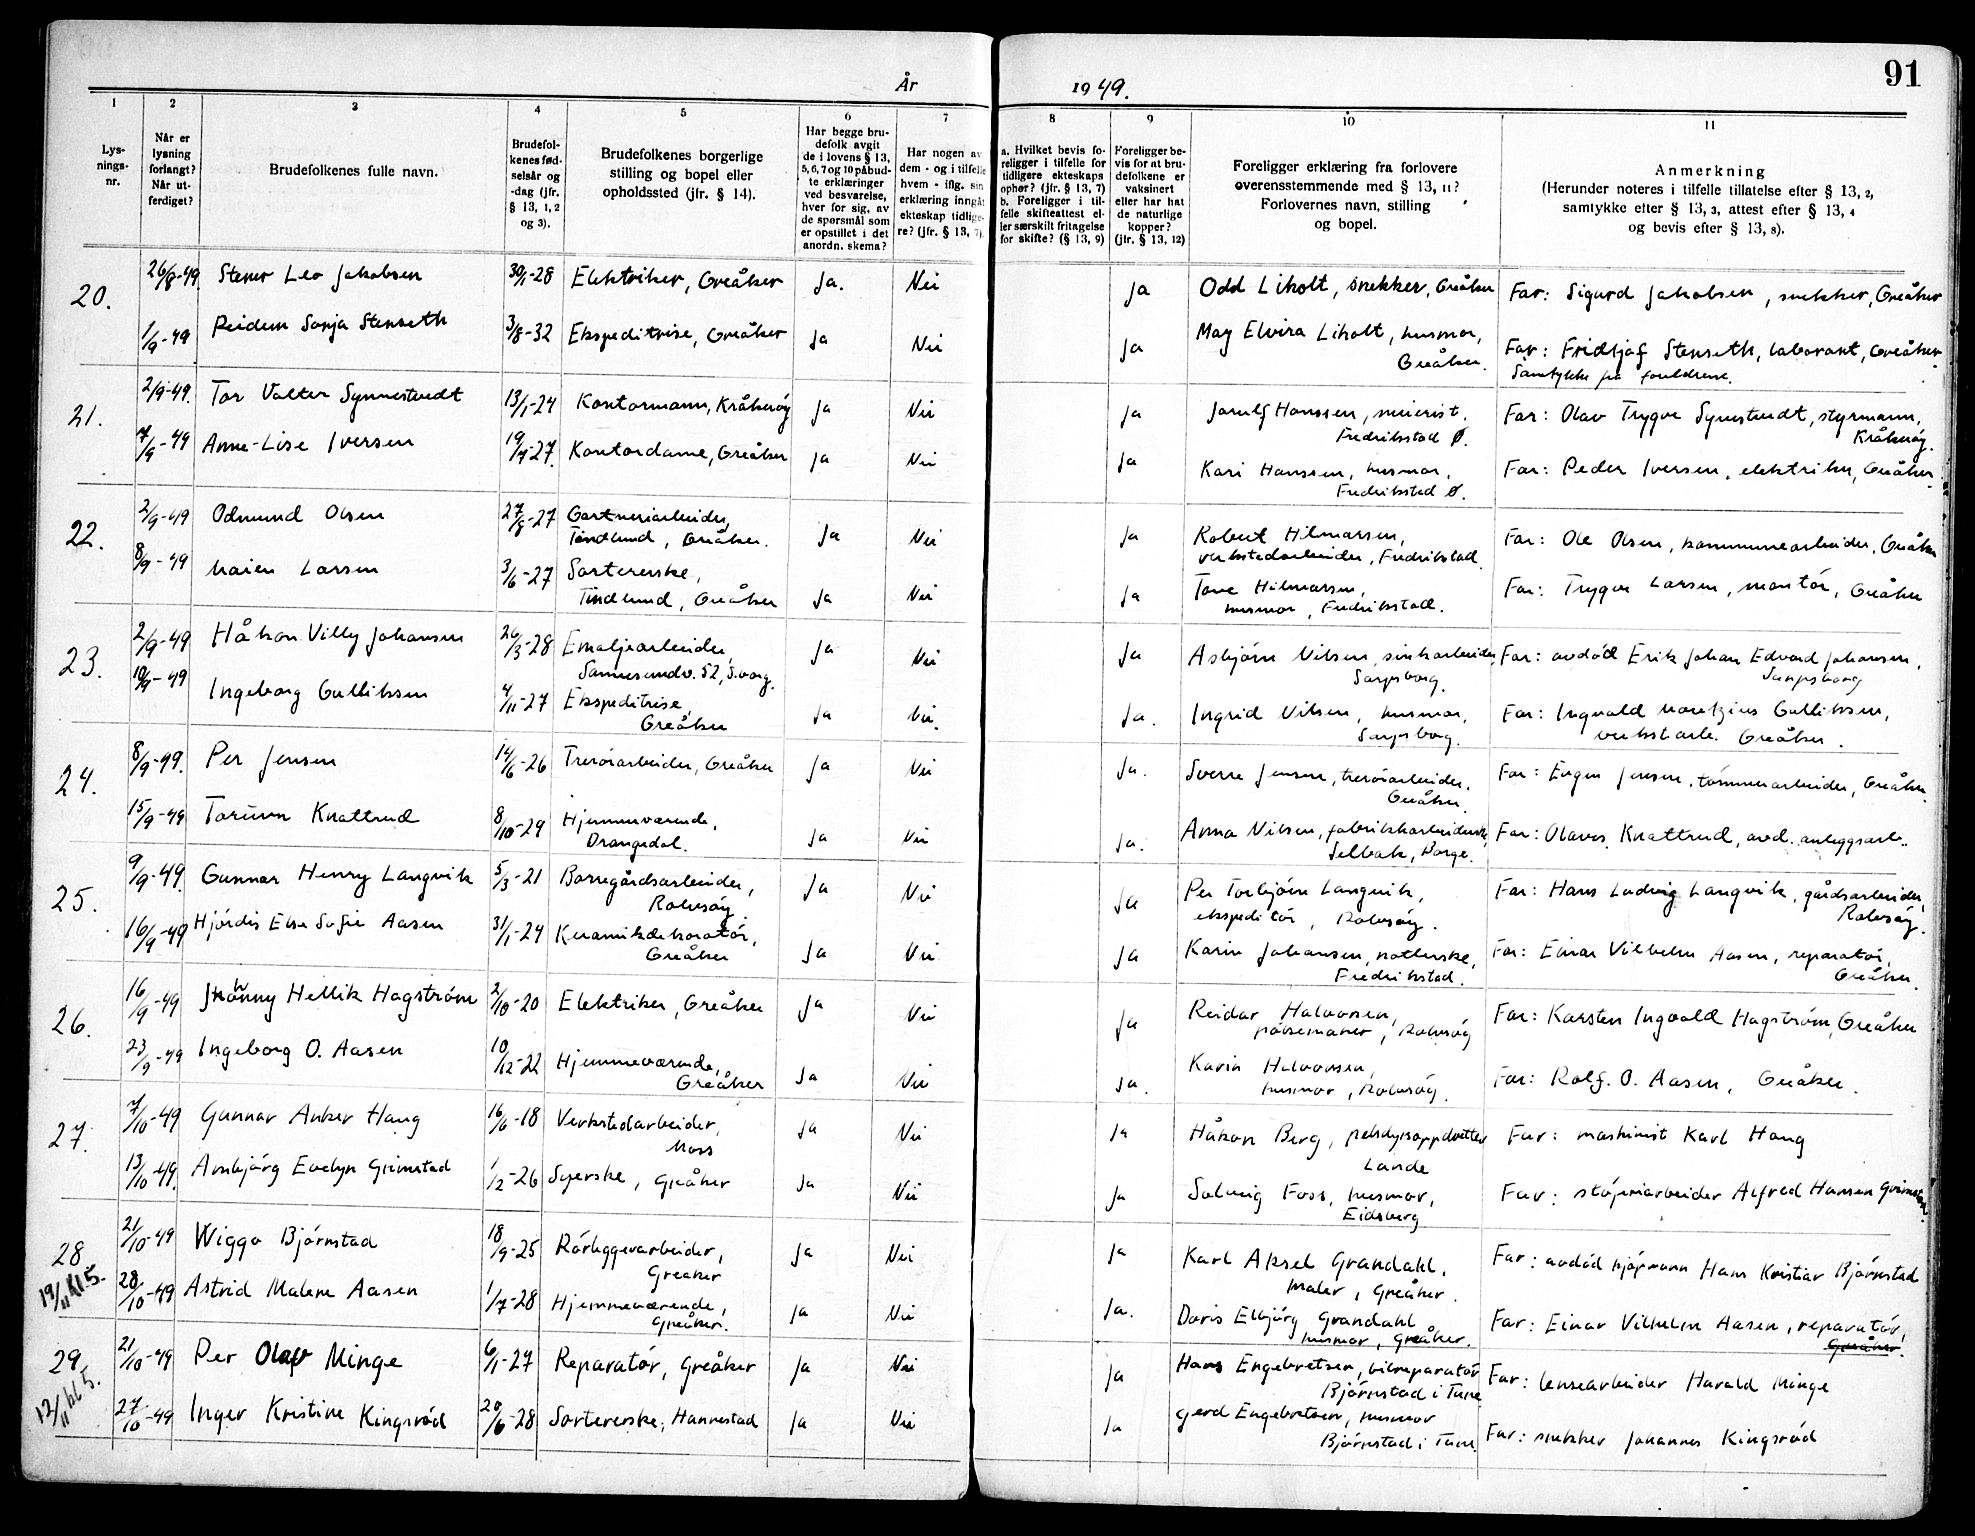 År 1949.
91
1 2 3 4 5 6 7 8 9 10 11
Lysningsnr.
Når er lysning forlangt? Når utferdiget?
Brudefolkenes fulle navn.
Brudefolkenes fødselsår og -dag (jfr. § 13, 1, 2 og 3).
Brudefolkenes borgerlige stilling og bopel eller opholdssted (jfr. § 14).
Har begge brudefolk avgit de i lovens § 13, 5, 6, 7 og 10 påbudte erklæringer ved besvarelse, hver for sig, av de spørsmål som er opstillet i det anordn. skema?
Har nogen av dem - og i tilfelle hvem - iflg. sin erklæring inngåt ekteskap tidligere? (jfr. § 13, 7).
a. Hvilket bevis foreligger i tilfelle for tidligere ekteskaps ophør? (jfr. § 13, 7) b. Foreligger i tilfelle skifteattest eller særskilt fritagelse for skifte? (§ 13, 9)
Foreligger bevis for at brudefolkene er vaksinert eller har hat de naturlige kopper? (jfr. § 13, 12)
Foreligger erklæring fra forlovere overensstemmende med § 13, 11? Forlovernes navn, stilling og bopel.
Anmerkning (Herunder noteres i tilfelle tillatelse efter § 13, 2, samtykke efter § 13, 3, attest efter § 13, 4 og bevis efter § 13, 8).
20. 26/8-49 Leo Jakobsen 30/1-28 Elektriker, Greåker Ja. Nei Ja Odd Liholt, snekker, Greåker Far: Sigurd Jakobsen, snekker, Greåker
1/9-49 Sonja Stenseth 3/8-32 Ekspeditrise, Greåker Ja Nei Ja May Elvira Liholt, husmor, Greåker. Far: Fridtjof Stenseth, laborant, Greåker.
Samtykke fra foreldrene.
21. 2/9-49. Tor Valter Synnestvedt 13/1-24 Kontormann, Kråkerøy Ja Nei Ja Hanssen, meierist, Fredrikstad Ø. Far: Olav Trygve Synestvedt, styrmann, Kråkerøy.
7/9-49 Anne-Lise Iversen 19/4-27. Kontordame, Greåker Ja Nei Ja Kari Hanssen, husmor, Fredrikstad Ø. Far: Peder Iversen, elektriker, Greåker.
22. 2/9-49 Odmund Olsen 27/8-27 Gartneriarbeider, Tindlund, Greåker. Ja Nei Ja Robert Hilmarsen, verkstedarbeider, Fredrikstad Far: Ole Olsen, kommunearbeider, Greåker
8/9-49 Maien Larsen 3/6-27 Sortererske, Tindlund, Greåker Ja Nei Ja Tove Hilmarsen, husmor, Fredrikstad. Far: Trygve Larsen, montør, Greåker
23. 2/9-49 Håkon Villy Johansen 26/3-28 Emaljearbeider, Sannesundv. 52, S.borg. Ja Nei Ja Asbjørn Nilsen, sinkarbeider, Sarpsborg. Far: avdød Erik Johan Edvard Johansen, Sarpsborg
10/9-49 Ingeborg Gulliksen 4/11-27 Ekspeditrise, Greåker Ja Nei. Ja. Ingrid Nilsen, husmor, Sarpsborg. Far: Ingvald Moritzius Gulliksen, verkst.arb. Greåker.
24. 8/9-49. Per Jensen 14/6-26 Tresiarbeider, Greåker Ja Nei Ja. Sverre Jensen, tresiarbeider, Greåker. Far: Eugen Jensen, tømmerarbeider, Greåker.
15/9-49 Torunn Knattrud 8/10-29 Hjemmeværende, Drangedal. Ja Nei Ja. Anna Nilsen, fabrikkarbeiderske, Selbak, Borge. Far: Olaves Knattrud, avd. anleggsarb.
25. 9/9-49. Gunnar Henry Langvik 5/3-21 Borregårdsarbeider, Rolvsøy. Ja Nei Ja Per Torbjørn Langvik, ekspeditør, Rolvsøy. Far: Hans Ludvig Langvik, gårdsarbeider, Rolvsøy.
16/9-49 Hjørdis Else Sofie Aasen 31/1-24 Keramikdekoratør, Greåker Ja Nei Ja Karin Johansen, Fredrikstad. Far: Einar Vilhelm Aasen, reparatør, Greåker.
26. 16/9-49 Jhonny Hellik Hagstrøm 2/10-20 Elektriker, Greåker Ja Nei Ja Reidar Halvorsen, pølsemaker, Rolvsøy Far: Karsten Ingvald Hagstrøm, Greåker
23/9-49 Ingeborg O. Aasen 10/12-22 Hjemmeværende, Greåker Ja Nei Ja. Karin Halvorsen, husmor, Rolvsøy. Far: Rolf. O. Aasen, Greåker.
27. 7/10-49 Gunnar Anker Haug 16/6-18 Verkstedarbeider, Moss Ja Nei Ja Håkon Berg, pelsdyroppdretter Lande Far: maskinist Karl Haug
13/10-49. Annbjørg Evelyn Grimstad 1/2-26 Syerske, Greåker Ja Nei Ja Solveig Foss, husmor, Eidsberg Far: støperiarbeider Alfred Hansen Grimstad.
28 21/10-49 Wiggo Bjørnstad 18/9-25 Rørleggerarbeider, Greaker Ja Nei Ja Karl Aksel Grandahl, Maler, Greåker. Far: avdød kjøpmann Hans Kristian Bjørnstad
19/11 kl 5. 28/10-49 Astrid Malene Aasen 1/7-28 Hjemmeværende, Greåker. Ja Nei Ja. Doris Elbjørg Grandahl husmor, Greåker. Far: Einar Vilhelm Aasen, reparatør, Greåker.
29. 21/10-49 Per Olav Minge 6/1-27 Reparatør, Greåker Ja Nei Ja Hans Engebretsen, bilreparatør Bjørnstad i Tune Far: lensearbeider Harald Minge
12/11 kl 5. 27/10-49 Inger Kristine Kingsrød 20/6-28 Sortererske, Hannestad Ja Nei Ja Gerd Engebretsen, husmor Bjørnstad i Tune. Far: snekker Johannes Kingsrød